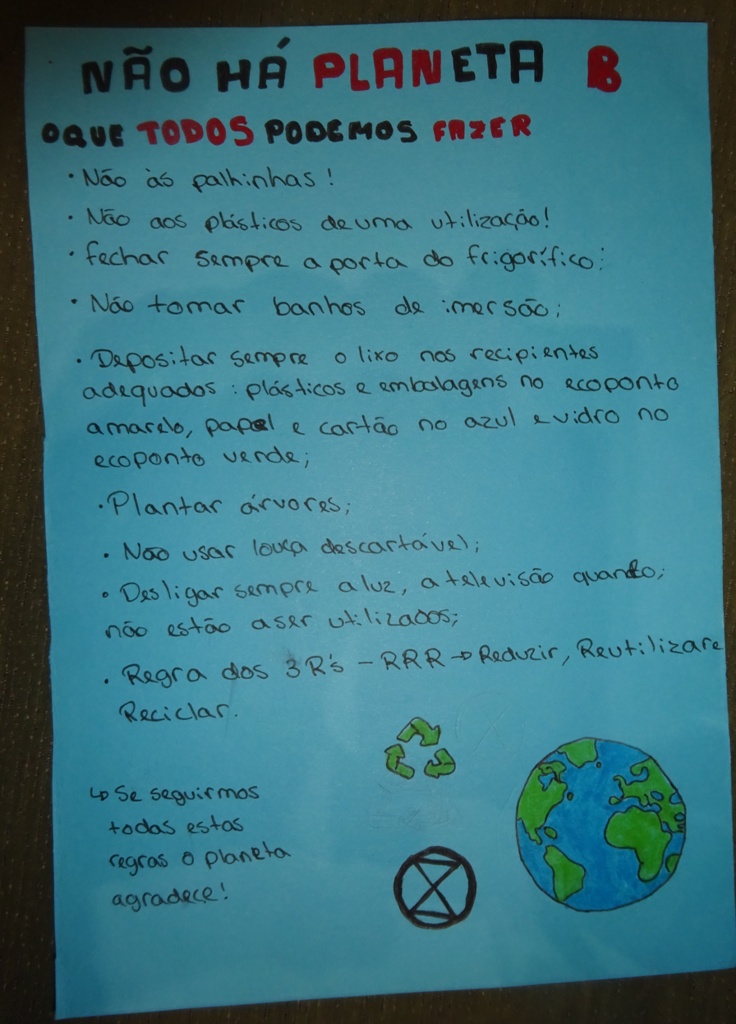 NÃO HÁ PLANETA B
O QUE TODOS PODEMOS FAZER
• Não às palhinhas!
• Não aos plásticos de uma utilização!
• fechar sempre a porta do frigorífico;
• Não tomar banhos de imersão;
• Depositar sempre o lixo nos recipientes
adequados: plásticos e embalagens no ecoponto
amarelo, papel e cartão no azul e vidro no
ecoponto verde;
• Plantar árvores;
• Não usar louça descartável;
• Desligar sempre a luz, a televisão quando;
não estão a ser utilizados;
• Regra dos 3R's - RRR → Reduzir, Reutilizar e
Reciclar.
↳ Se seguirmos
todas estas
regras o planeta
agradece!